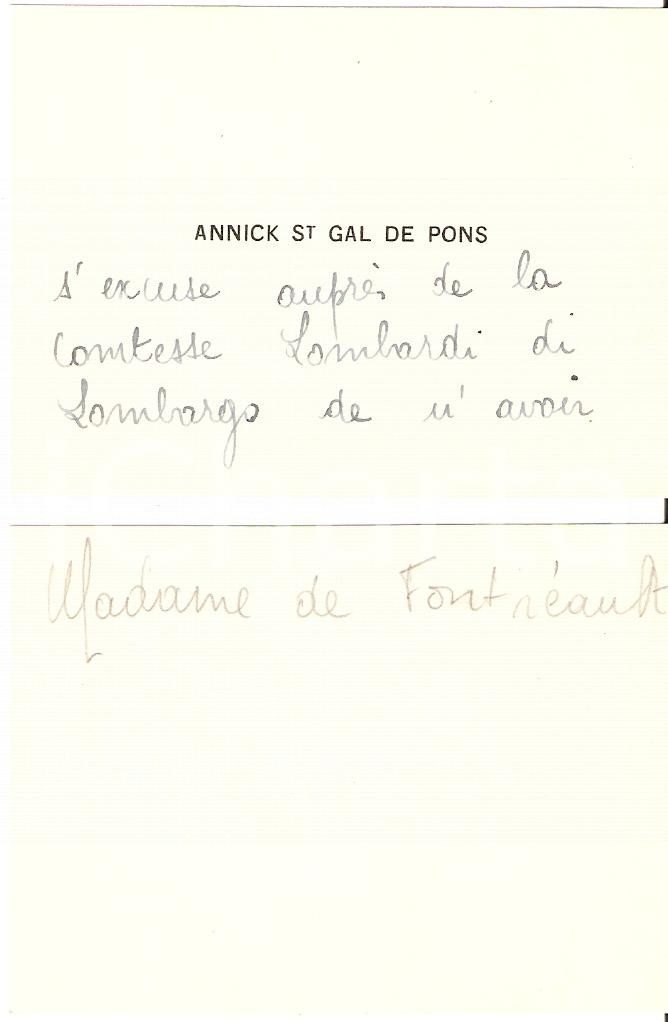 ANNICK ST GAL DE PONS
s'excuse auprès de la
Comtesse Lombardi di
Lombargo de n'avoir
Madame de Fontréault